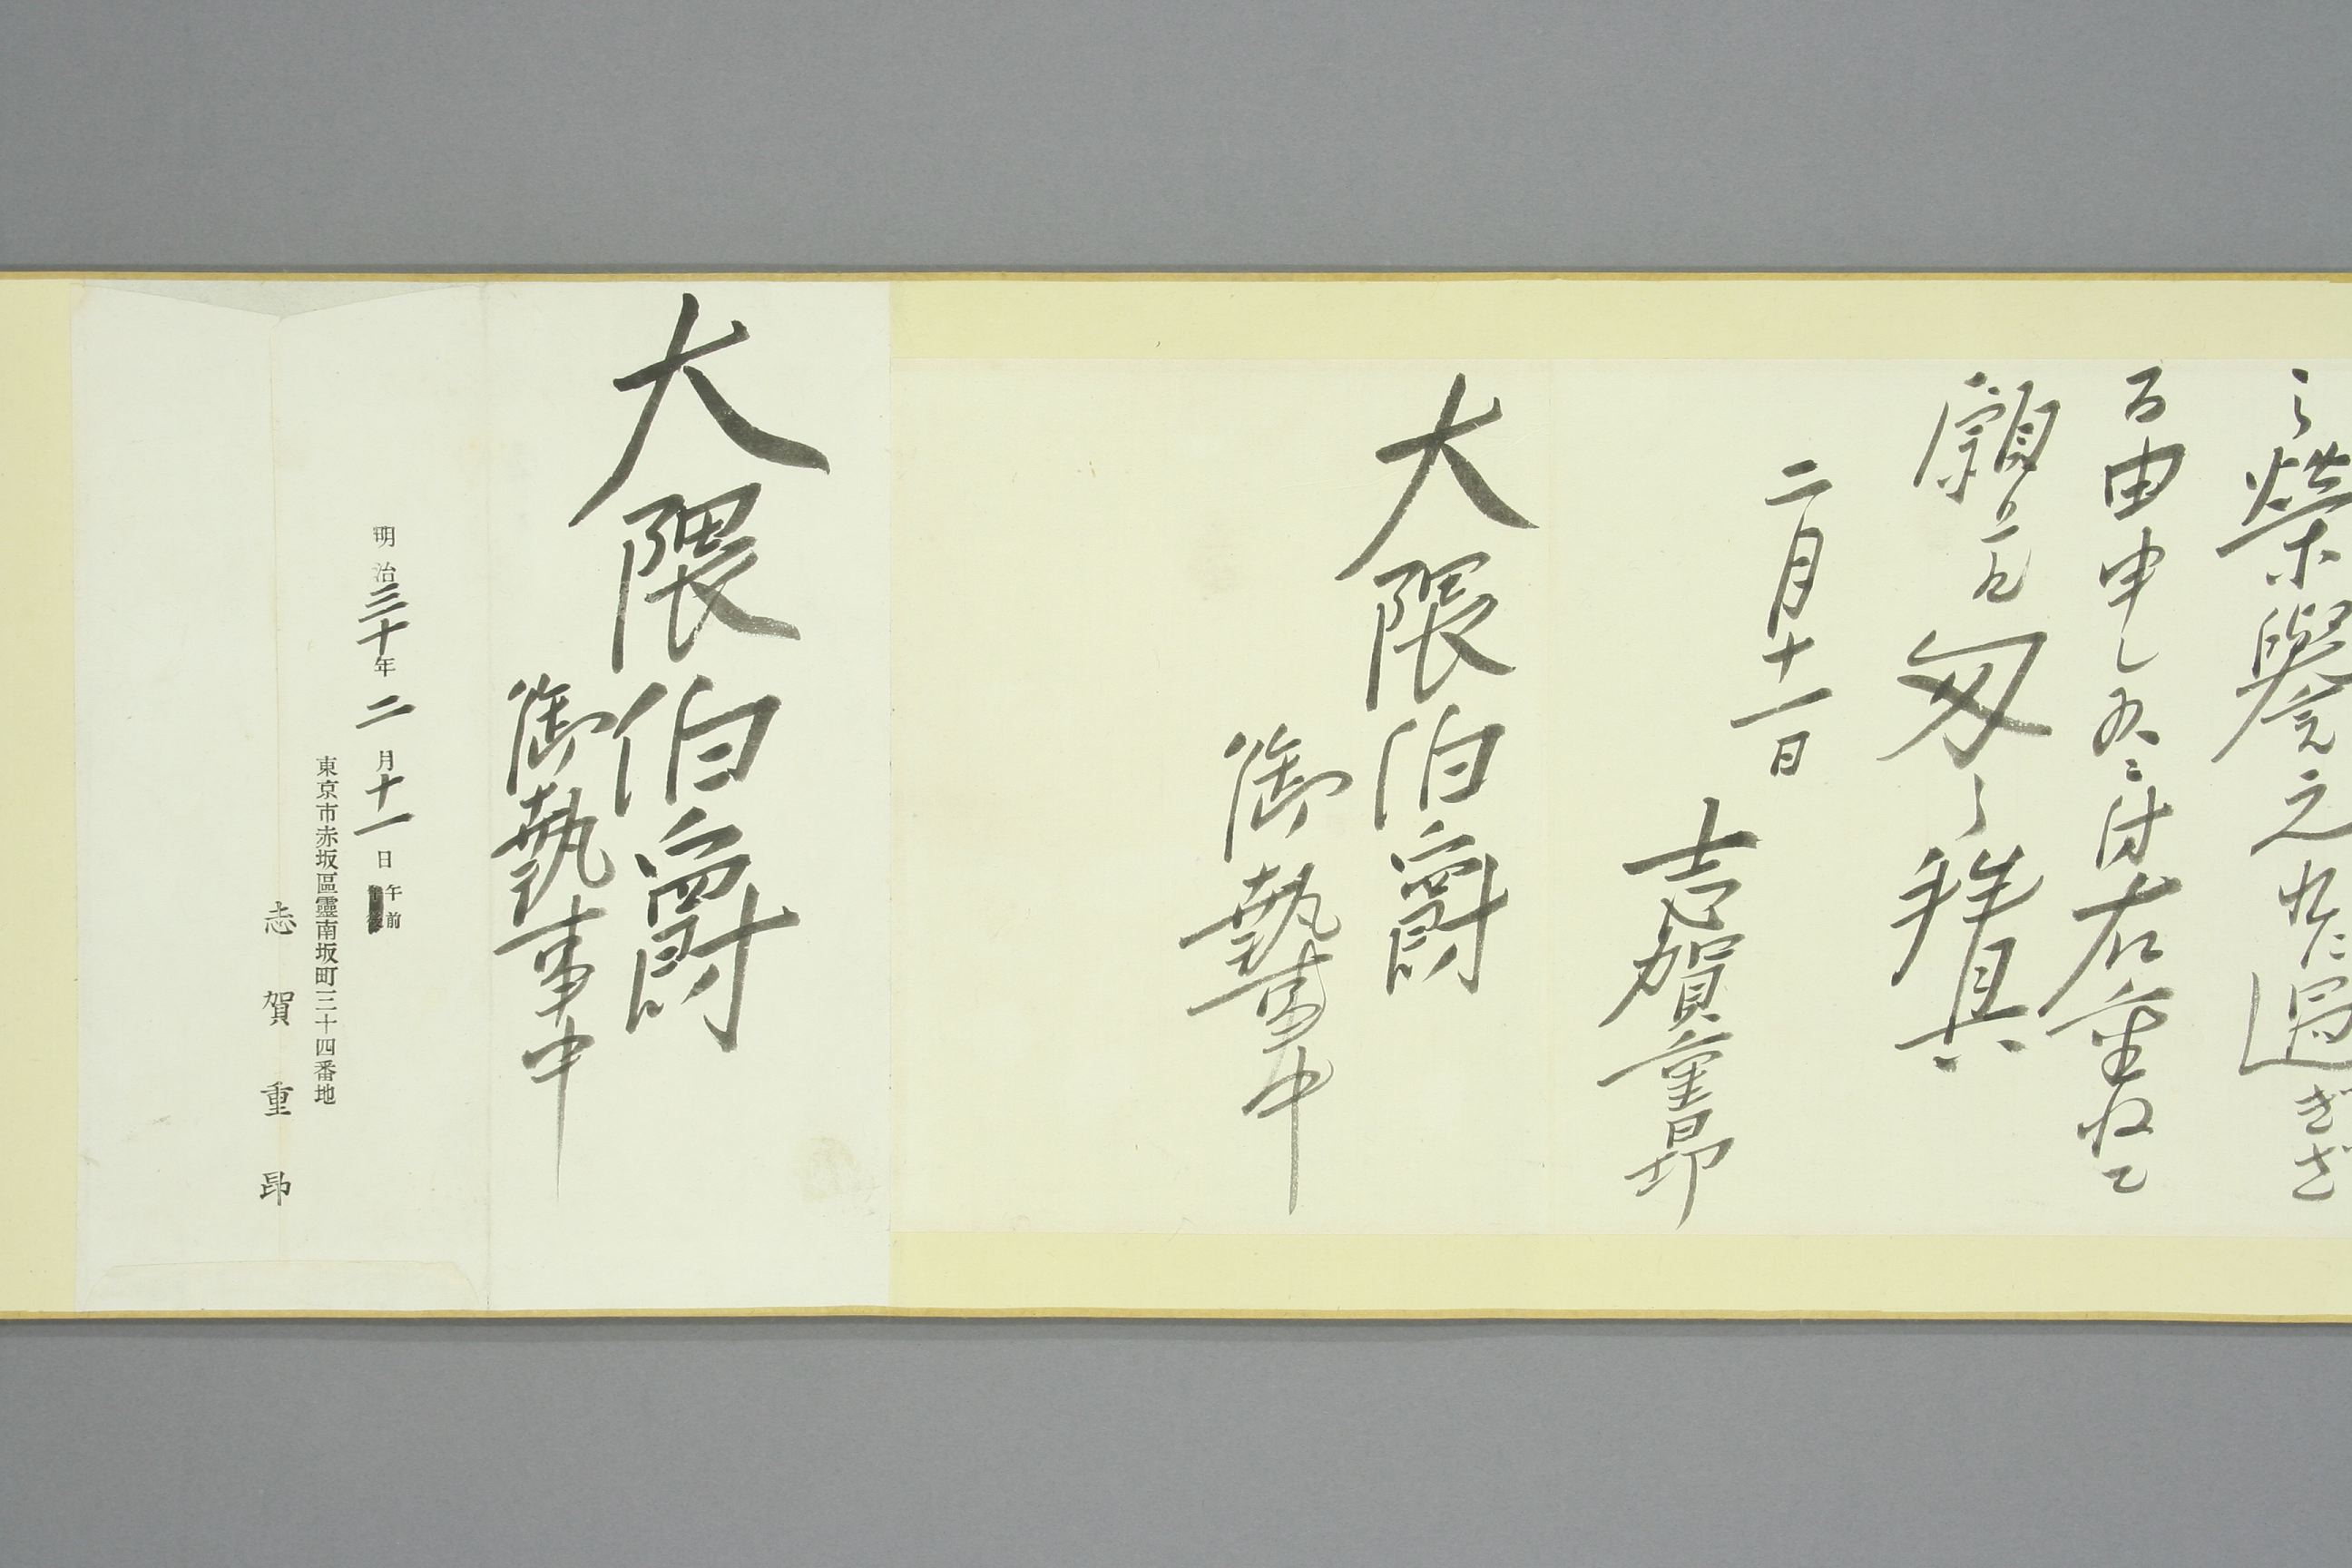 之榮譽之れに過ぎざ
る由申し居候付右重ねて
願上候匆々拜具
二月十一日
志賀重昂
大隈伯爵
御執事中
大隈伯爵
御執事中
明治三十年二月十一日午前
東京市赤坂區靈南坂町三十四番地
志賀重昂